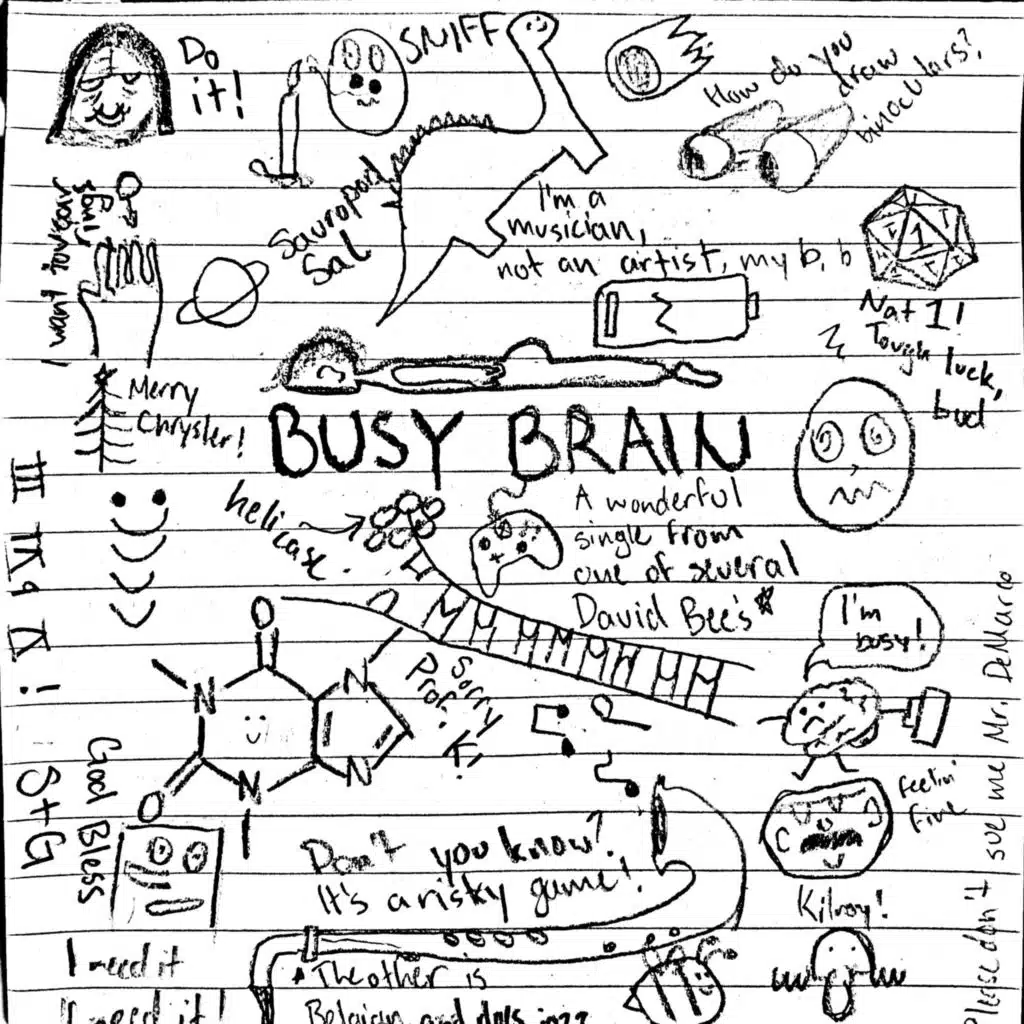 Do
it!
SNIFF
How do you
draw
binoculars?
Sauropod
Sal
I'm a
musician,
not an artist, my b, b
I want
your
1
Nat 1!
Tough luck,
bud
Merry
Chrysler!
BUSY BRAIN
helicase
A wonderful
single from
one of several
David Bee's*
I'm
busy!
O
N
N
O
N
N
Sorry
Prof. K!
feelin'
fine
God Bless
Don't you know?
It's a risky game!
Kilroy!
Please don't sue me Mr. DeMarco
I need it
I need it!
* The other is
Belgian and does jazz